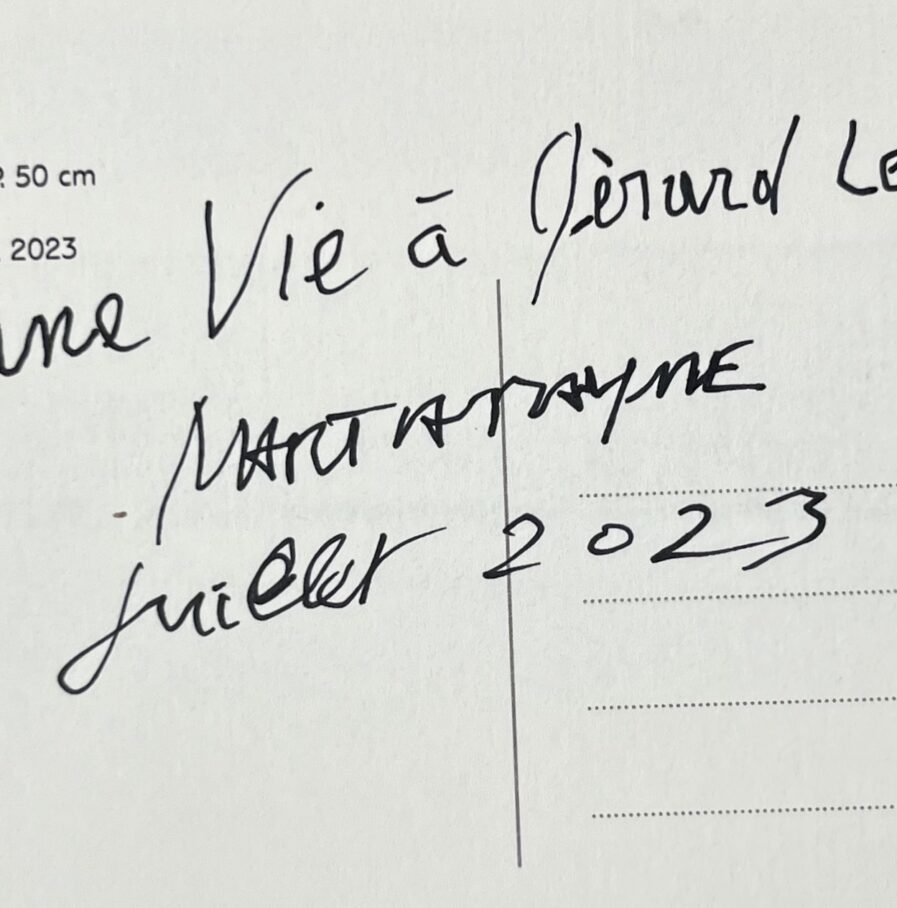 50 cm
2023
une Vie à Gérard Le
MARTABAYNE
juillet 2023